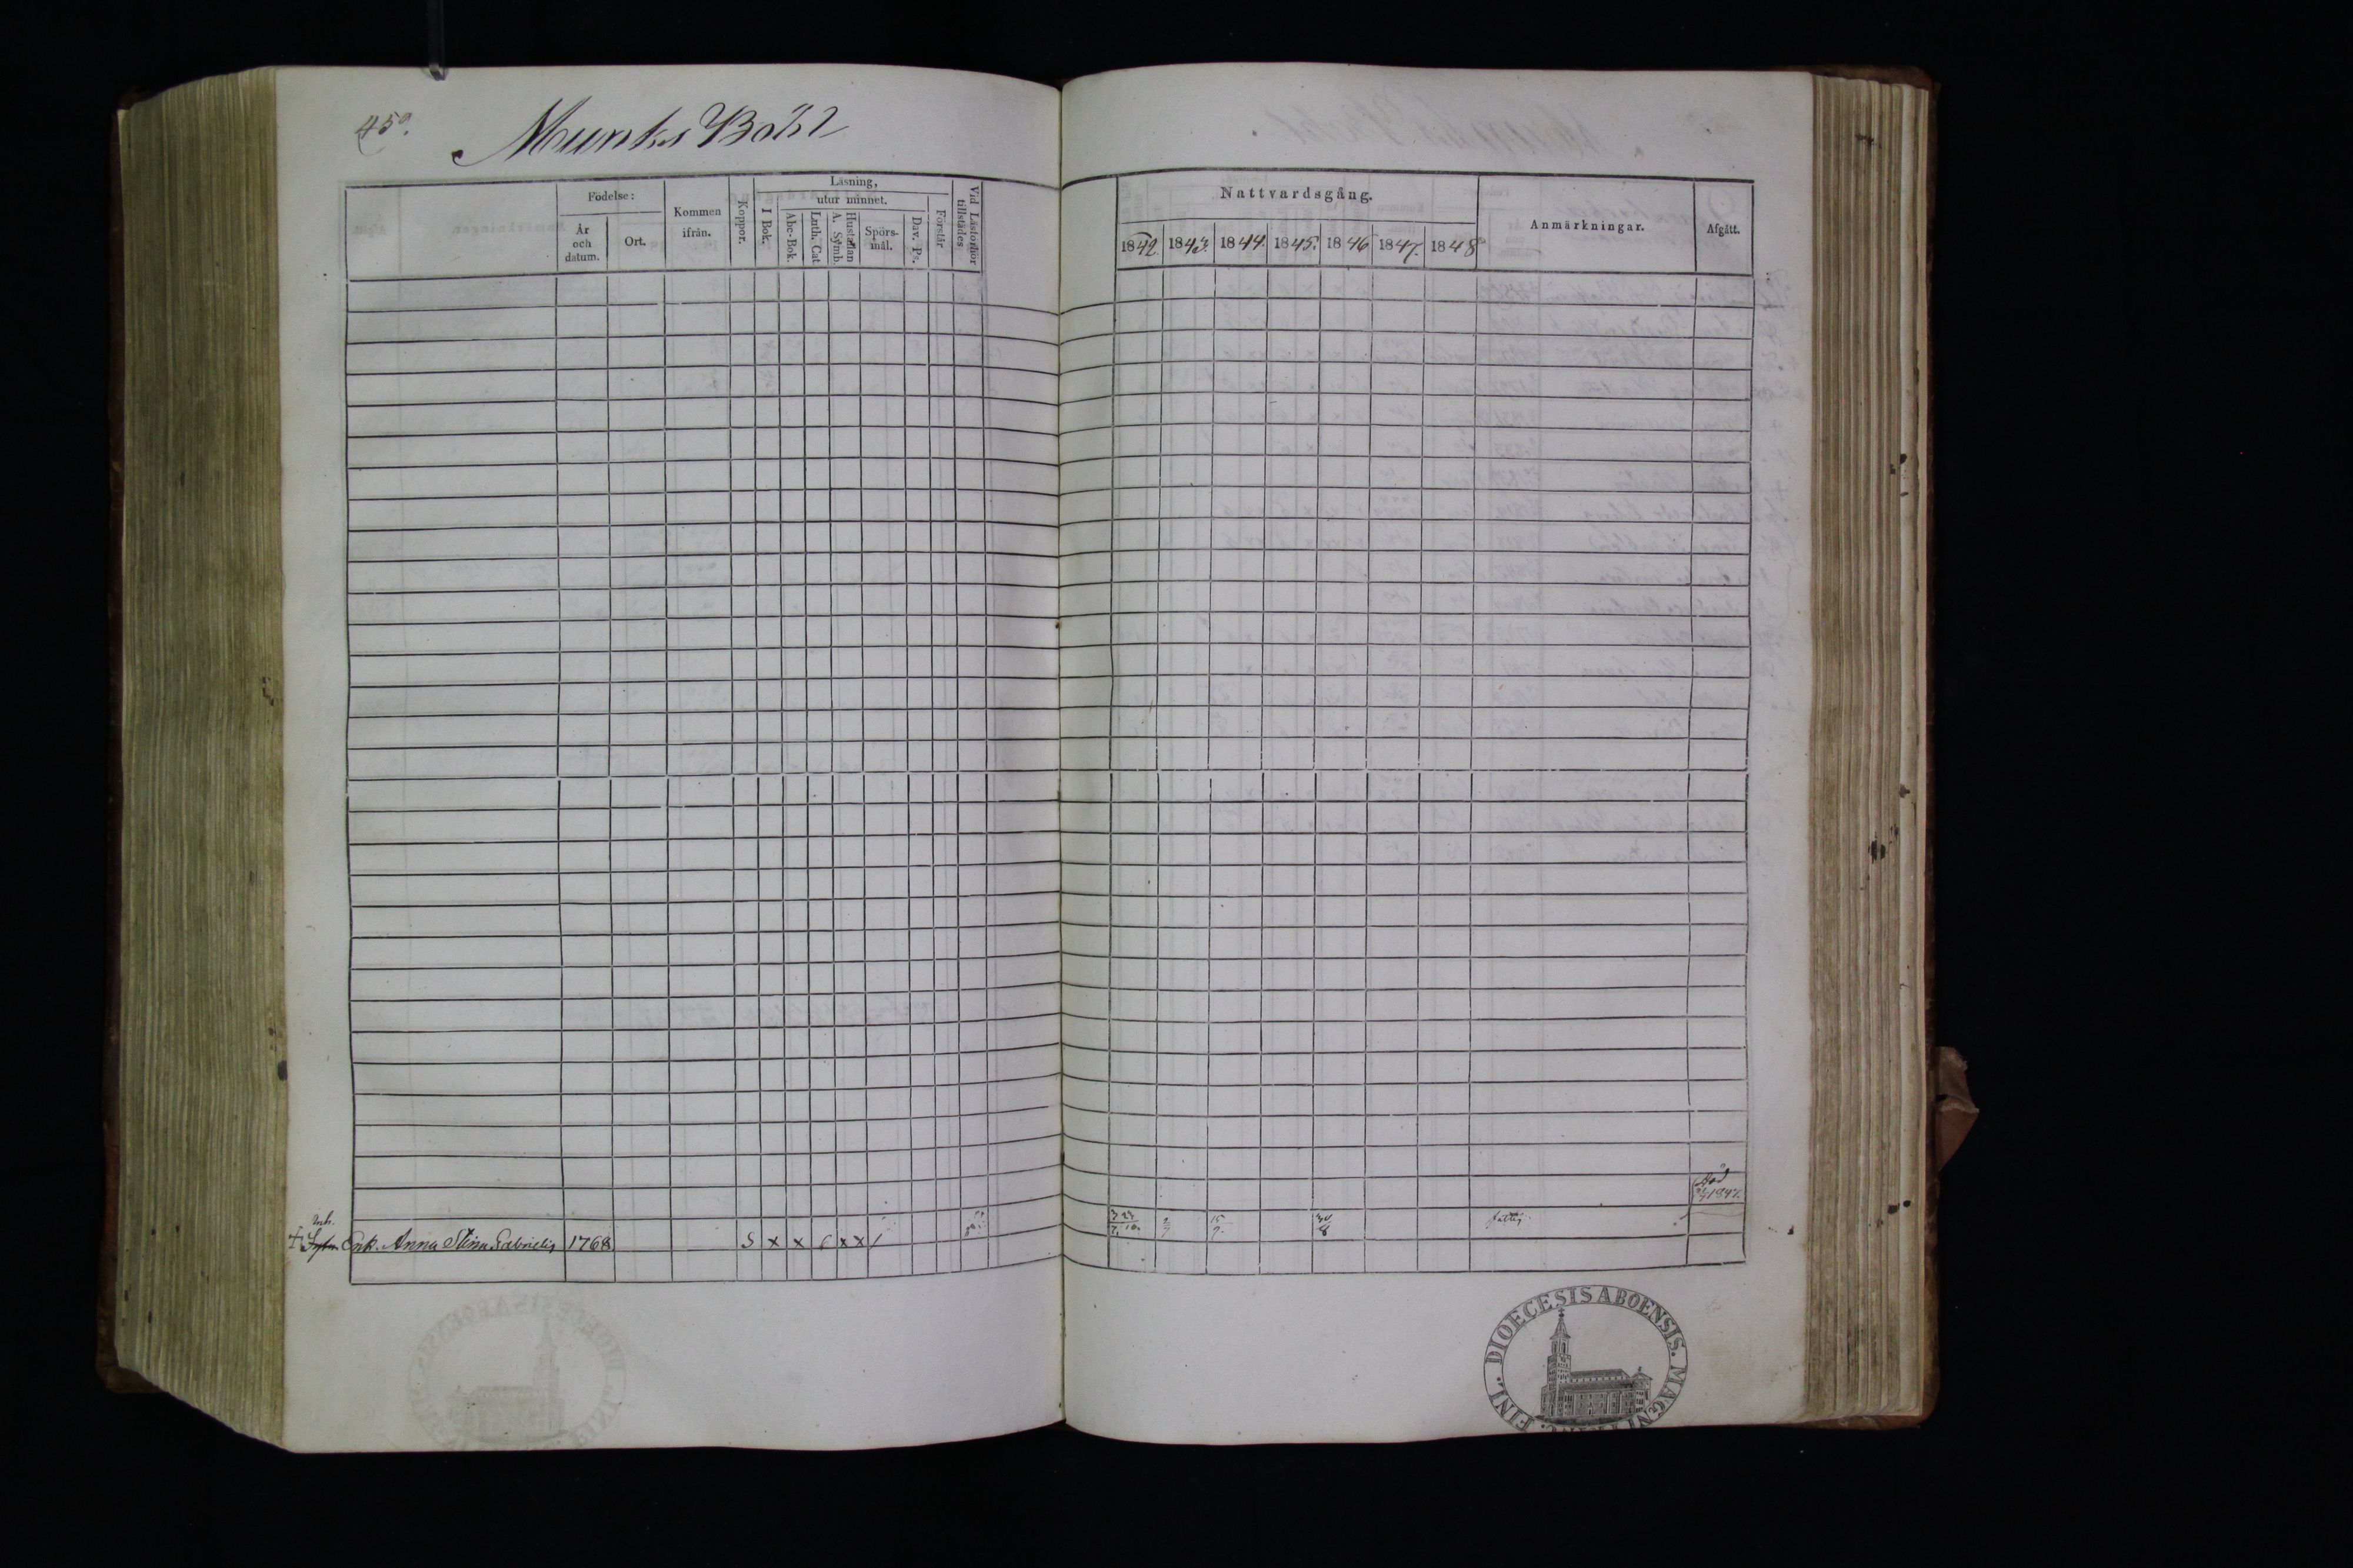 450.
Munks Böhl
Födelse:
År och datum.
Ort.
Kommen ifrån.
Koppor.
Läsning,
I Bok.
utur minnet.
Abc-Bok.
Luth. Cat
A. Symb.
Hustaflan
Spörs-mål.
Dav. Ps.
Förstår
Vid Läsförhör tillstädes
Nattvardsgång.
1842. 1843. 1844. 1845. 1846 1847. 1848
Anmärkningar.
Afgått.
Död
1847.
Inh.
Enk. Anna Stina Gabrielis 1768 S x x x x 1
DIOECESIS ABOENSIS. MAGNI
FINL.